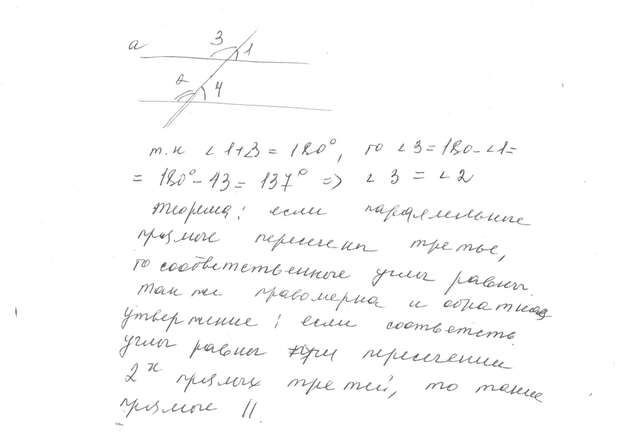 a 3 1
2 4
т.к ∠1+3 = 180°, то ∠3 = 180 - ∠1 =
= 180° - 43 = 137° => ∠3 = ∠2
теорема: если параллельные
прямые пересечены третье,
то соответственные углы равны.
так же правомерна и обратная
утвержение: если соответств.
углы равны при пересечении
2х прямых третей, то такие
прямые ||.